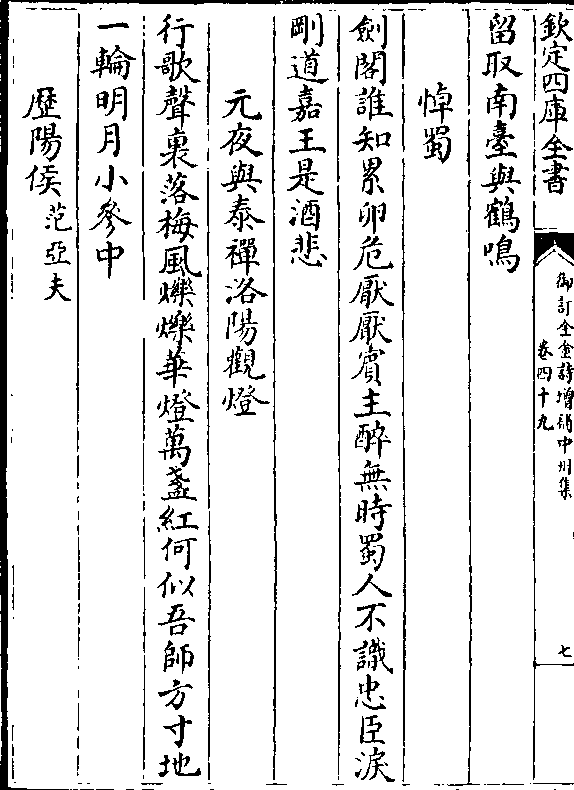 欽定四庫全書
御訂全金詩增補中州集
卷四十九
七
留取南臺與鶴鳴
悼蜀
劍閣誰知累卵危厭厭賓主醉無時蜀人不識忠臣淚
剛道嘉王是酒悲
元夜與泰禪洛陽觀燈
行歌聲裏落梅風爍爍華燈萬盞紅何似吾師方寸地
一輪明月小參中
歴陽侯范亞夫